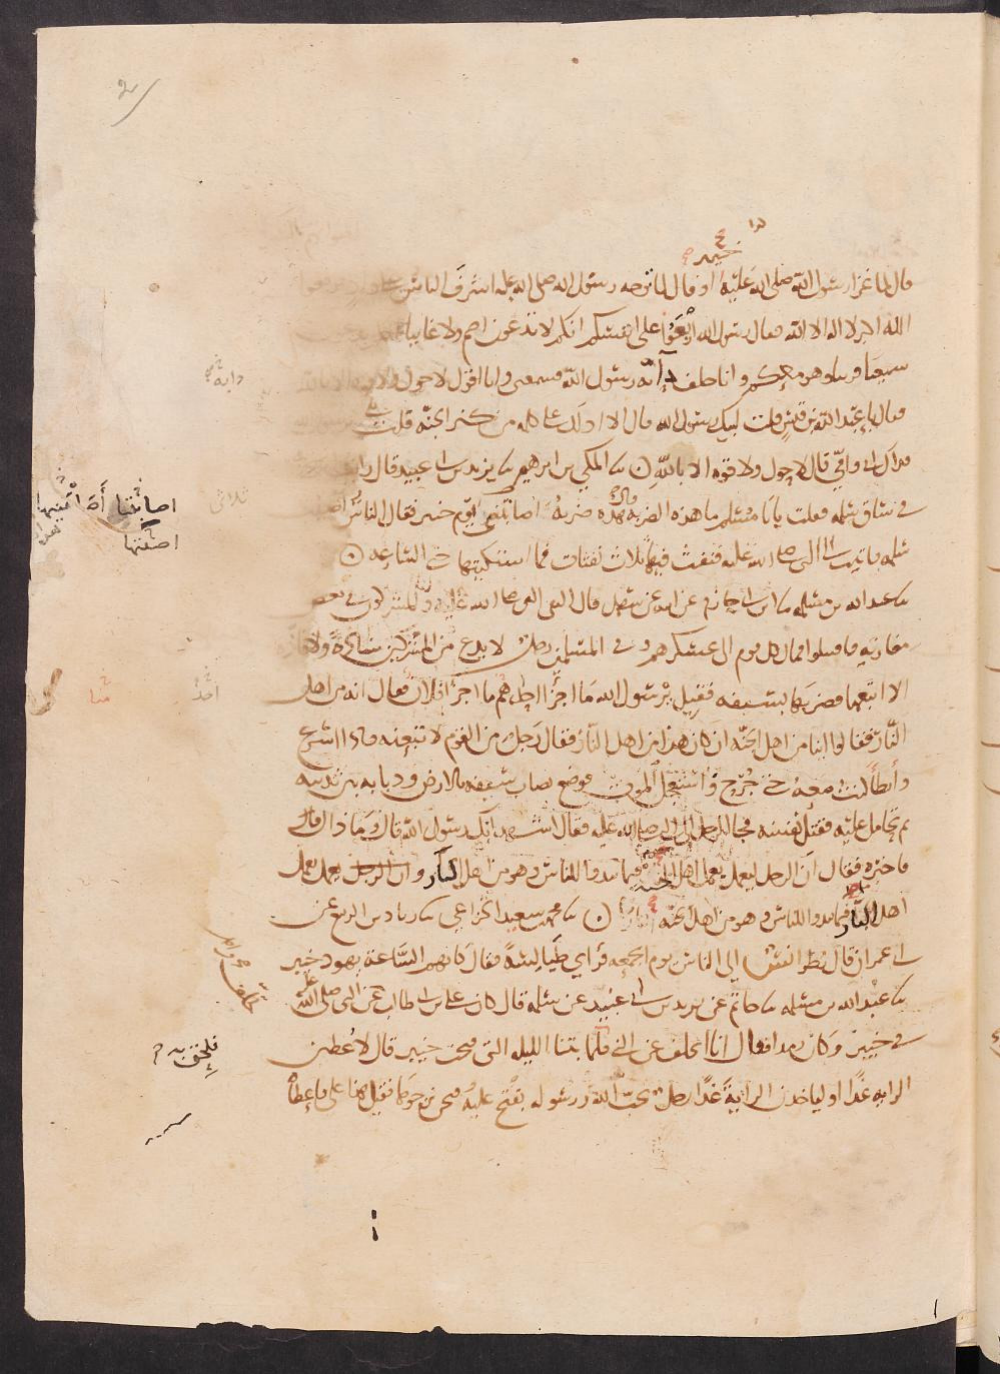 خيبر
قال لما غزا رسول الله صلى الله عليه او قال لما توجه رسول الله صلى الله عليه اشرف الناس
الله اكبر لا اله الا الله فقال رسول الله اربعوا على انفسكم انكم لا تدعون اصم ولا غايبا
سميعا قريبا وهو معكم وانا خلف دابة رسول الله فسمعني وانا اقول لا حول ولا قوة الا بالله
فقال يا عبد الله بن قيس قلت لبيك رسول الله قال الا ادلك على كلمه من كنز الجنه قلت
فداك ابي وامي قال لا حول ولا قوه الا بالله ن سا المكي بن ابرهيم سا يزيد بن ابي عبيد قال رايت
في ساق سلمه فقلت يابا مسلم ما هذه الضربه قال هذه ضربة اصابتني يوم خيبر فقال الناس اصيب
سلمه فاتيت الى النبي صلى الله عليه فنفث فيه ثلاث نفثات فما اشتكيتها حتى الساعه ن
سا عبد الله بن مسلمه سا ابن ابي حازم عن ابيه عن سهل قال التقى النبي صلى الله عليه والمشركون في بعض
مغازيه فاقتتلوا فمال كل قوم الى عسكرهم وفي المسلمين رجل لا يدع من المشركين شاذة ولا فاذة
الا اتبعها فضربها بسيفه فقيل يرسول الله ما اجزأ احد هم ما اجزأ فلان فقال انه من اهل
النار فقالوا اينا من اهل الجنه ان كان هذا من اهل النار فقال رجل من القوم لا تبعنه فاذا اسرع
وابطأ كنت معه حتى جرح فاستعجل الموت فوضع نصاب سيفه بالارض وذبابه بين ثدييه
ثم تحامل عليه فقتل نفسه فجا الرجل الى النبي صلى الله عليه فقال اشهد انك رسول الله قال وما ذاك قال
فاخبره فقال ان الرجل ليعمل بعمل اهل الجنة فيما يبدوا للناس وهو من اهل النار وان الرجل يعمل بعمل
اهل النار فيما يبدوا للناس وهو من اهل الجنه ن سا محمد بن سعيد الخزاعي سا زياد بن الربيع عن
ابي عمران قال نظر انس الى الناس يوم الجمعه فراى طيالسة فقال كانهم الساعة يهود خيبر
سا عبد الله بن مسلمه سا حاتم عن يزيد بن ابي عبيد عن سلمه قال كان علي بن ابي طالب عن النبي صلى الله
في خيبر وكان رمدا فقال انا اتخلف عن النبي فلما بتنا الليله التي فتحت خيبر قال لاعطين
الرايه غدا او لياخذن الراية غدا رجل يحب الله ورسوله يفتح عليه فنحن نرجوها فقيل هذا علي فاعطاه
دابة
اصابتنا
اصابتها
منا
احد
تخلف
فلحق به